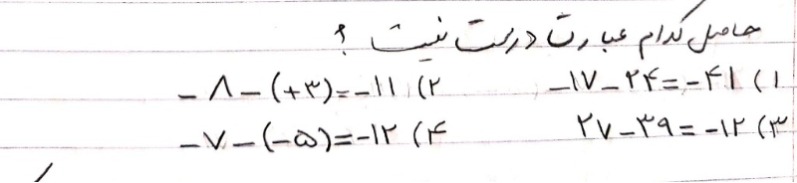 حاصل کدام عبارت درست نیست ؟
۱) -۱۷-۲۴=-۴۱ ۲) -۸-(+۳)=-۱۱
۳) ۲۷-۳۹=-۱۲ ۴) -۷-(-۵)=-۱۲